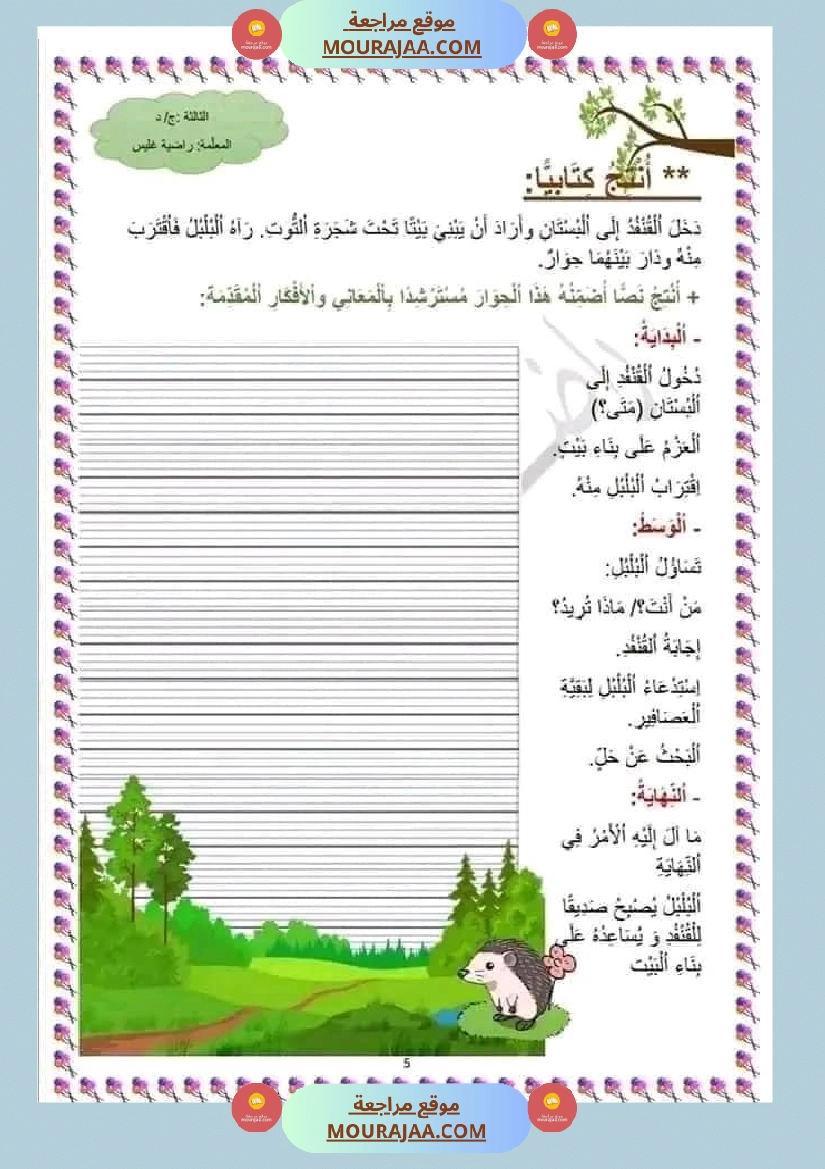 موقع مراجعة
MOURAJAA.COM
الثالثة :ج/ د
المعلّمة: راضية غليس
** أُنْتِجُ كِتَابِيًّا:
دَخَلَ ٱلْقُنْفُذُ إِلَى ٱلْبُسْتَانِ وأَرَادَ أَنْ يَبْنِيَ بَيْتًا تَحْتَ شَجَرَةِ ٱلتُّوتِ. رَآهُ ٱلْبُلْبُلُ فَٱقْتَرَبَ
مِنْهُ ودَارَ بَيْنَهُمَا حِوَارٌ.
+ أُنْتِجُ نَصًّا أُضَمِّنُهُ هَذَا ٱلْحِوَارَ مُسْتَرْشِدًا بِٱلْمَعَانِي وٱلأَفْكَارِ ٱلْمُقَدَّمَةِ:
- ٱلْبِدَايَةُ:
دُخُولُ ٱلْقُنْفُدِ إِلَى
ٱلْبُسْتَانِ (مَتَى؟)
ٱلْعَزْمُ عَلَى بِنَاءِ بَيْتٍ.
اِقْتِرَابُ ٱلْبُلْبُلِ مِنْهُ.
- ٱلْوَسَطُ:
تَسَاؤُلُ ٱلْبُلْبُلِ:
مَنْ أَنْتَ؟/ مَاذَا تُرِيدُ؟
إِجَابَةُ ٱلقُنْفُدِ.
اِسْتِدْعَاءُ ٱلْبُلْبُلِ لِبَقِيَّةِ
ٱلْعَصَافِيرِ.
ٱلْبَحْثُ عَنْ حَلٍّ.
- ٱلنِّهَايَةُ:
مَا آلَ إِلَيْهِ ٱلْأَمْرُ فِي
ٱلنِّهَايَةِ
ٱلْبُلْبُلُ يُصْبِحُ صَدِيقًا
لِلْقُنْفُدِ وَ يُسَاعِدُهُ عَلَى
بِنَاءِ ٱلْبَيْتِ
5
موقع مراجعة
MOURAJAA.COM